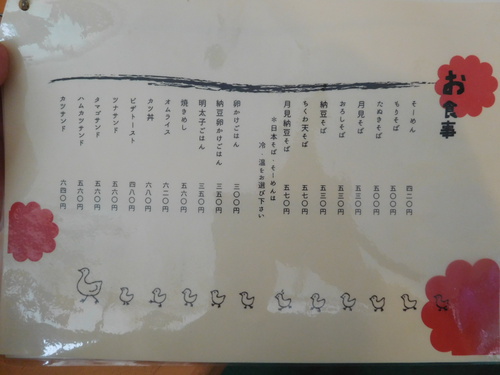 お食事
そーめん 四二〇円
もりそば 五〇〇円
たぬきそば 五〇〇円
月見そば 五三〇円
おろしそば 五三〇円
納豆そば 五三〇円
ちくわ天そば 五七〇円
月見納豆そば 五七〇円
※日本そば・そーめんは
冷・温をお選び下さい
卵かけごはん 三〇〇円
納豆卵かけごはん 三五〇円
明太子ごはん 三五〇円
焼きめし 五六〇円
オムライス 六二〇円
カツ丼 六八〇円
ピザトースト 四八〇円
ツナサンド 五六〇円
タマゴサンド 五六〇円
ハムカツサンド 五六〇円
カツサンド 六四〇円